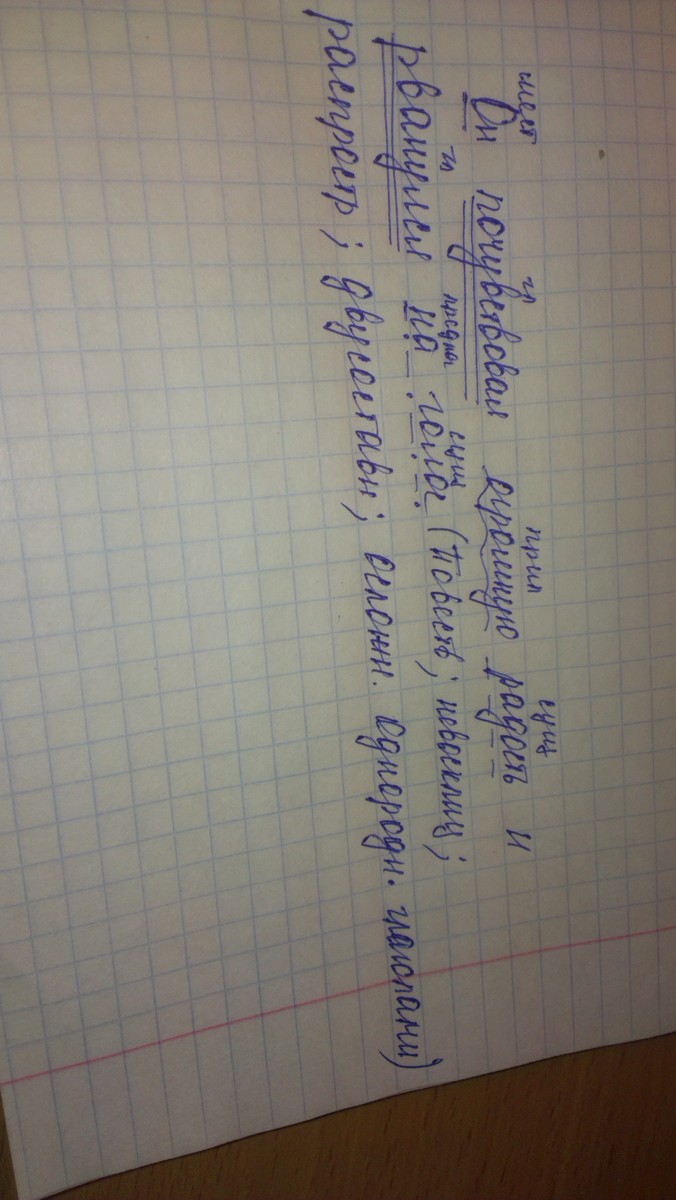 мест гл прил сущ
Он почувствовал огромную радость и
гл предлог сущ
рванулся на голос (Повеств; невосклиц;
распростр; двусоставн; осложн. однородн. глаголами)